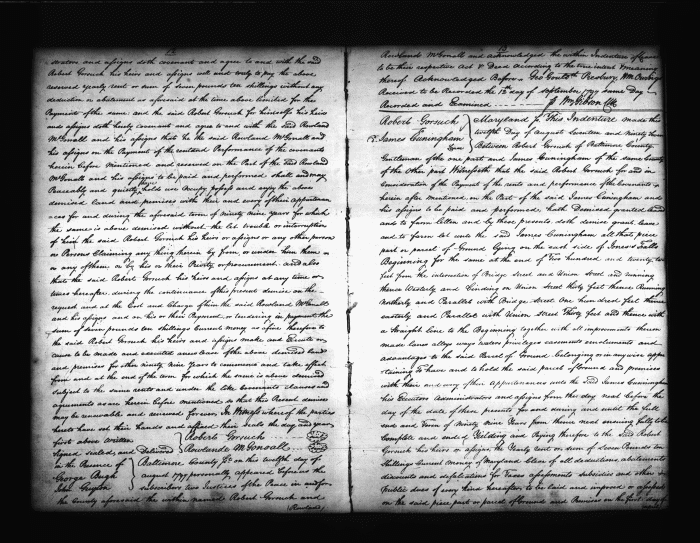 ecutors and assigns doth covenant and agree to and with the said
Robert Gorsuch his heirs and assigns well and truly to pay the above
reserved yearly rent or sum of seven pounds ten shillings without any
deduction or abatement as aforesaid at the time above limited for the
Payment of the same. And the said Robert Gorsuch for himself his heirs
and assigns doth hereby covenant and agree to and with the said Rowland
McGonall and his assigns that he the said Rowland McGonall and
his assigns on the Payment of the rent and Performance of the covenants
herein before Mentioned and reserved on the Part of the said Rowland
McGonall and his assigns to be paid and performed shall and may
Peaceably and quietly hold use Occupy possess and enjoy the above
demised land and premises with their and every of their appurtenan
ces for and during the aforesaid term of ninety nine years for which
the same is above demised without the let trouble or interruption
of him the said Robert Gorsuch his heirs or assigns or any other person
or Persons Claiming any thing herein by From or under him them
or any of them or by his or their Privity or procurement. and also
that the said Robert Gorsuch his heirs and assigns at any time or
times hereafter during the continuance of this present demise on the
request and at the Cost and Charge of him the said Rowland McGonall
and his assigns and on his or their Payment or tendering in payment the
sum of seven pounds ten shillings Current money as a fine therefor to
the said Robert Gorsuch his heirs and assigns make and Execute or
cause to be made and executed a new lease of the above demised land
and premises for other ninety nine years to commence and take effect
from and at the end of the term for which the same is above demised
subject to the same rents and under the like covenants clauses and
agreements as are herein before mentioned so that this Present demise
may be renewable and renewed forever. In Witness where of the parties
hereto have set their hands and affixed their seals the day and year
first above written Robert Gorsuch
Signed sealed and Delivered Rowland McGonall
in the Presence of Baltimore County Ss on this twelfth day of
George Buch August 1797 personally appeared before us the
John subscribers two Justices of the Peace in and for
the County aforesaid the within named Robert Gorsuch and
(Rowland)
Rowland McGonall and acknowledged the within Indenture of Lease
to be their respective Act & Deed according to the true intent & meaning
thereof. Acknowledged Before Geo Presbury
Received to be Recorded the 13 day of september 1797 same Day
Recorded and Examined Wm Gibson Clk
Robert Gorsuch Maryland Ss This Indenture made this
To James Cuningham twelfth Day of August Seventeen and Ninety seven
Between Robert Gorsuch of Baltimore County
Gentleman of the one part and James Cuningham of the same County
of the Other part Witnesseth that the said Robert Gorsuch for and in
Consideration of the Payment of the rents and performance of the Covenants
herein after mentioned on the Part of the said James Cuningham and
his assigns to be paid and performed, hath Demised granted
and to farm letten and by these presents doth demise grant lease
and to farm let unto the said James Cuningham all that piece
part or parcel of Ground lying on the east side of Jones's Falls
Beginning for the same at the end of two hundred and twenty two
feet from the intersection of Bridge street and Union street and running
thence Westerly and Binding on Union street thirty feet thence Running
Northerly and Parallel with Bridge street One hundred feet thence
easterly and Parallel with Union street Thirty feet and thence with
a straight line to the Beginning together with all improvements thereon
made lanes alleys ways waters privileges easements emoluments and
advantages to the said Parcel of Ground belonging or in any wise apper
taining to have and to hold the said parcel of Ground and premises
with their and every of their appurtenances unto the said James Cuningham
his Executors administrators and assigns from the day next before the
day of the date of these presents for and during and until the full
end and Term of Ninety nine Years from thence next ensuing fully to be
Complete and ended Yielding and Paying therefor to the said Robert
Gorsuch his heirs or assigns the Yearly rent or sum of Seven Pounds ten
Shillings Current Money of Maryland Clear of all deductions abatements
discounts and defalcations for Taxes assessments subsidies and other
public dues of every kind hereafter to be laid and imposed or assessed
on the said piece part or parcel of Ground and Premises on the first day of